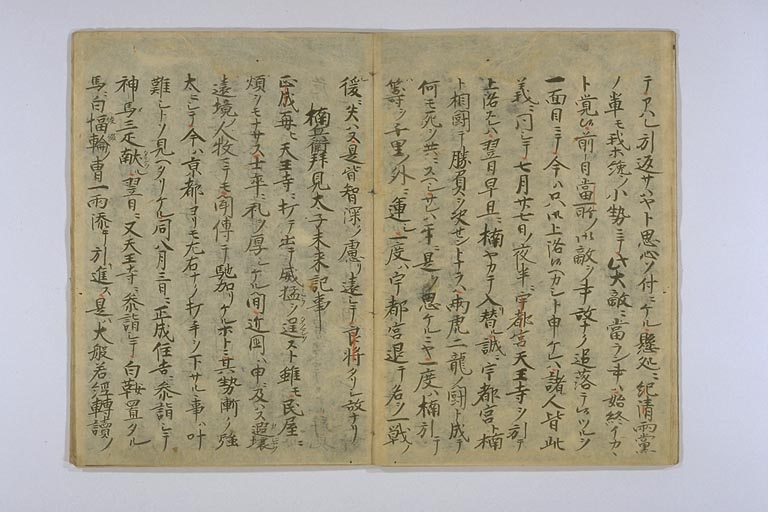 テアハレ引返サハヤト思心ソ付ニケル懸処ニ紀清両黨
ノ輩モ我等纔ノ小勢ニテ此大敵ニ當ラン事ハ始終イカヽ
ト覚候前日當所ノ敵ヲ事故ナク追落テ候ツルヲ
一面目ニテ今ハ只御上洛候ヘカシト申ケレハ諸人皆此
義ニ同シテ七月廿七日ノ夜半ニ宇都宮天王寺ヲ引テ
上洛スレハ翌日早旦ニ楠ヤカテ入替ル誠ニ宇都宮ト楠
ト相闘テ勝負ヲ決セントナラハ両虎二龍ノ闘ト成テ
何モ死ヲ共ニスヘシサレハ互ニ是ヲ思ケルニヤ一度ハ楠引テ
籌ヲ千里ノ外ニ運シ一度ハ宇都宮退テ名ヲ一戦ノ
後ニ失ハス是皆智深ク慮リ遠シテ良将タリシ故ナリ
楠兵衛拝見太子未来記事
正成再ヒ天王寺ニ打テ出テ威猛ヲ逞スト雖モ民屋ニ
煩ヲモナサス士卒ニ礼ヲ厚シケル間近国ハ申ニ及ハス遐壌
遠境人牧ニテモ聞傳テ馳加リケルホトニ其勢漸ク強
大ニシテ今ハ京都ヨリモ左右ナク打手ヲ下サル事ハ叶
難シトソ見ヘタリケル同八月三日ニ正成住吉ニ参詣シテ
神馬三疋献ル翌日ニ又天王寺ニ参詣シテ白鞍置タル
馬ニ白幅輪ノ冑一両添テ引進ス是ハ大般若經轉讀ノ